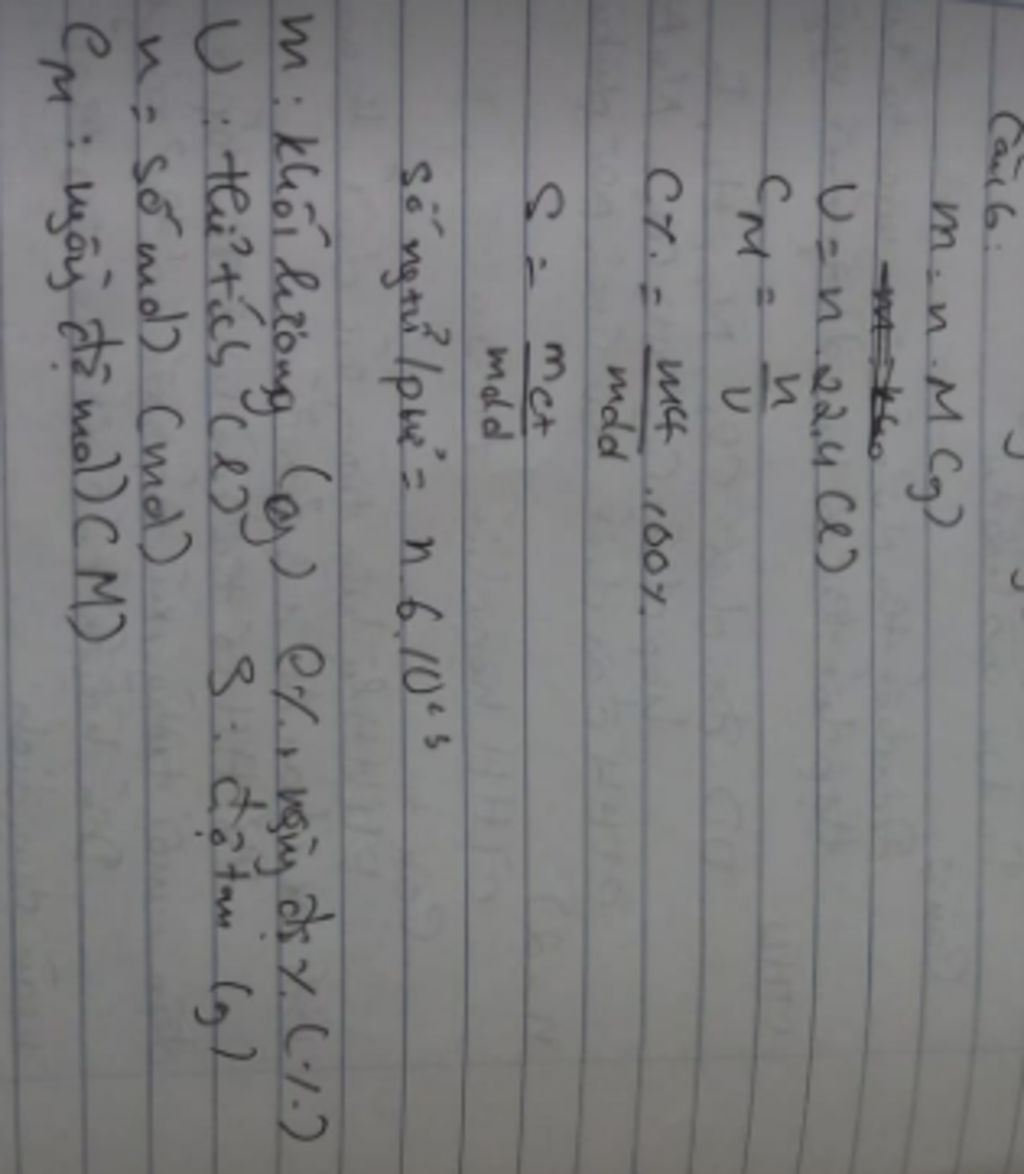 Câu 6:
m = n . M (g)
V = n . 22,4 (l)
CM = n / V
C% = mct / mdd . 100%
S = mct / mdd
số ngtử / phtử = n . 6 . 10²³
m : khối lượng (g) C% : nồng độ % (%)
V : thể tích (l) S : độ tan (g)
n = số mol (mol)
CM : nồng độ mol (M)